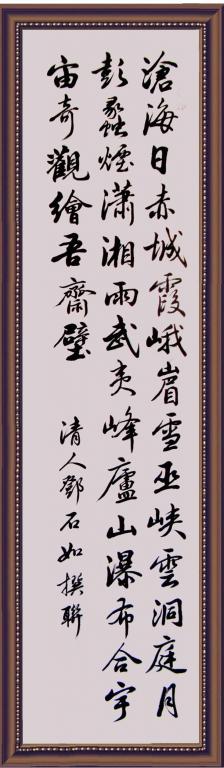 滄海日赤城霞峨嵋雪巫峽雲洞庭月
彭蠡煙瀟湘雨武夷峰廬山瀑布合宇
宙奇觀繪吾齋壁
清人鄧石如撰聯